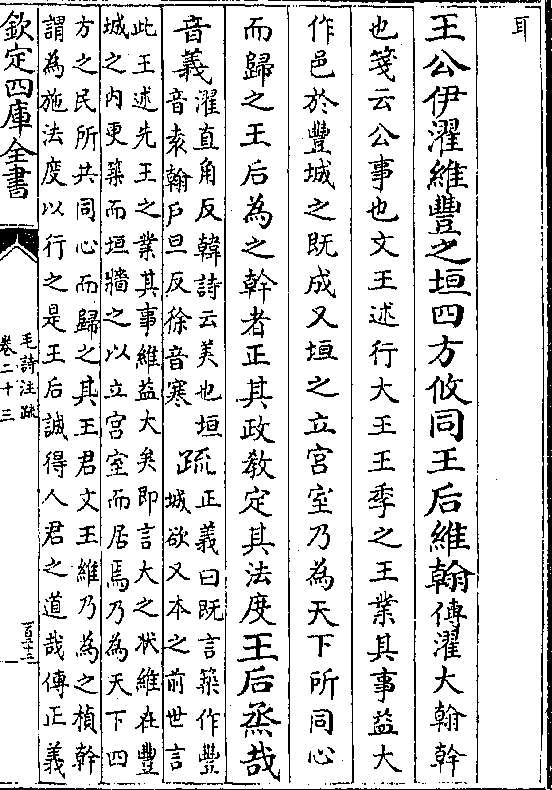 耳
王公伊濯維豐之垣四方攸同王后維翰傳濯大翰幹
也箋云公事也文王述行大王王季之王業其事益大
作邑於豐城之既成又垣之立宫室乃為天下所同心
而歸之王后為之幹者正其政教定其法度王后烝哉
音義濯直角反韓詩云美也垣音袁翰戶旦反徐音寒疏正義曰既言築作豐城欲又本之前世言
此王述先王之業其事維益大矣即言大之狀維在豐
城之内更築而垣牆之以立宫室而居焉乃為天下四
方之民所共同心而歸之其王君文王維乃為之楨幹
謂為施法度以行之是王后誠得人君之道哉傳正義
欽定四庫全書
毛詩注疏
卷二十三